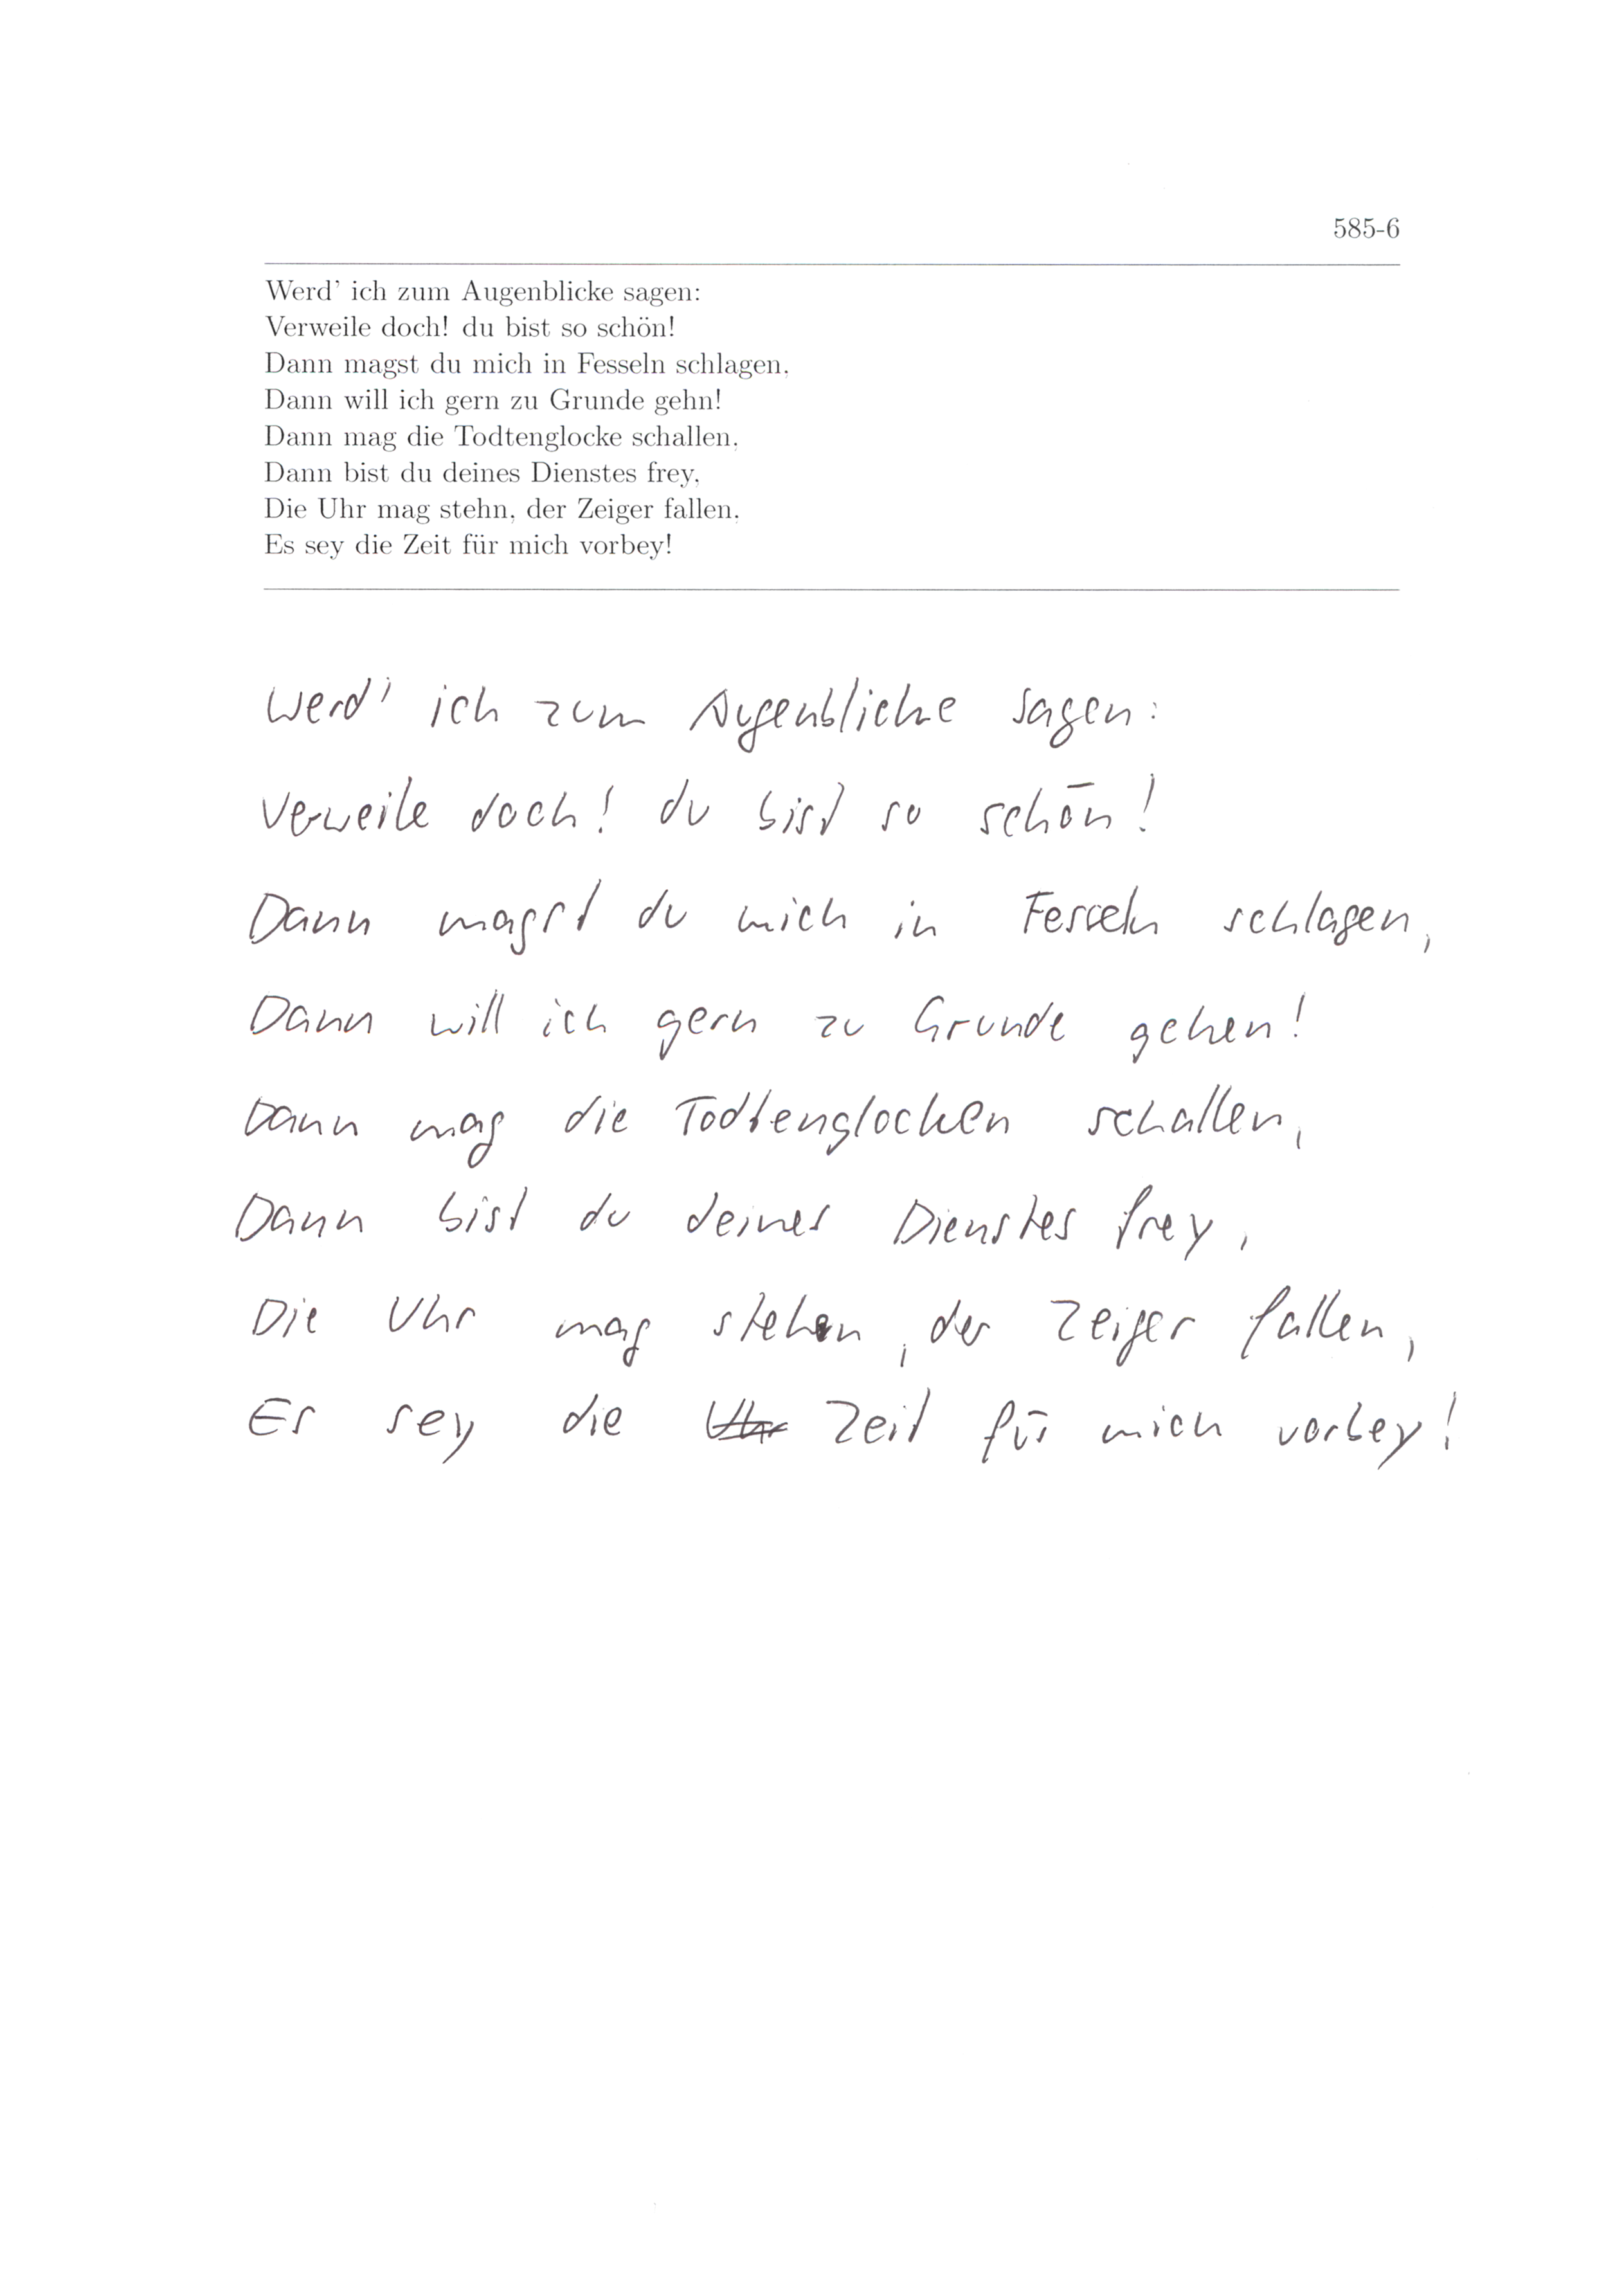 585-6
Werd' ich zum Augenblicke sagen:
Verweile doch! du bist so schön!
Dann magst du mich in Fesseln schlagen,
Dann will ich gern zu Grunde gehn!
Dann mag die Todtenglocke schallen,
Dann bist du deines Dienstes frey,
Die Uhr mag stehn, der Zeiger fallen,
Es sey die Zeit für mich vorbey!
Werd' ich zum Augenblicke sagen:
Verweile doch! du bist so schön!
Dann magst du mich in Fesseln schlagen,
Dann will ich gern zu Grunde gehen!
Dann mag die Todtenglocken schallen,
Dann bist du deines Dienstes frey,
Die Uhr mag stehen, der Zeiger fallen,
Es sey die Uhr Zeit für mich vorbey!